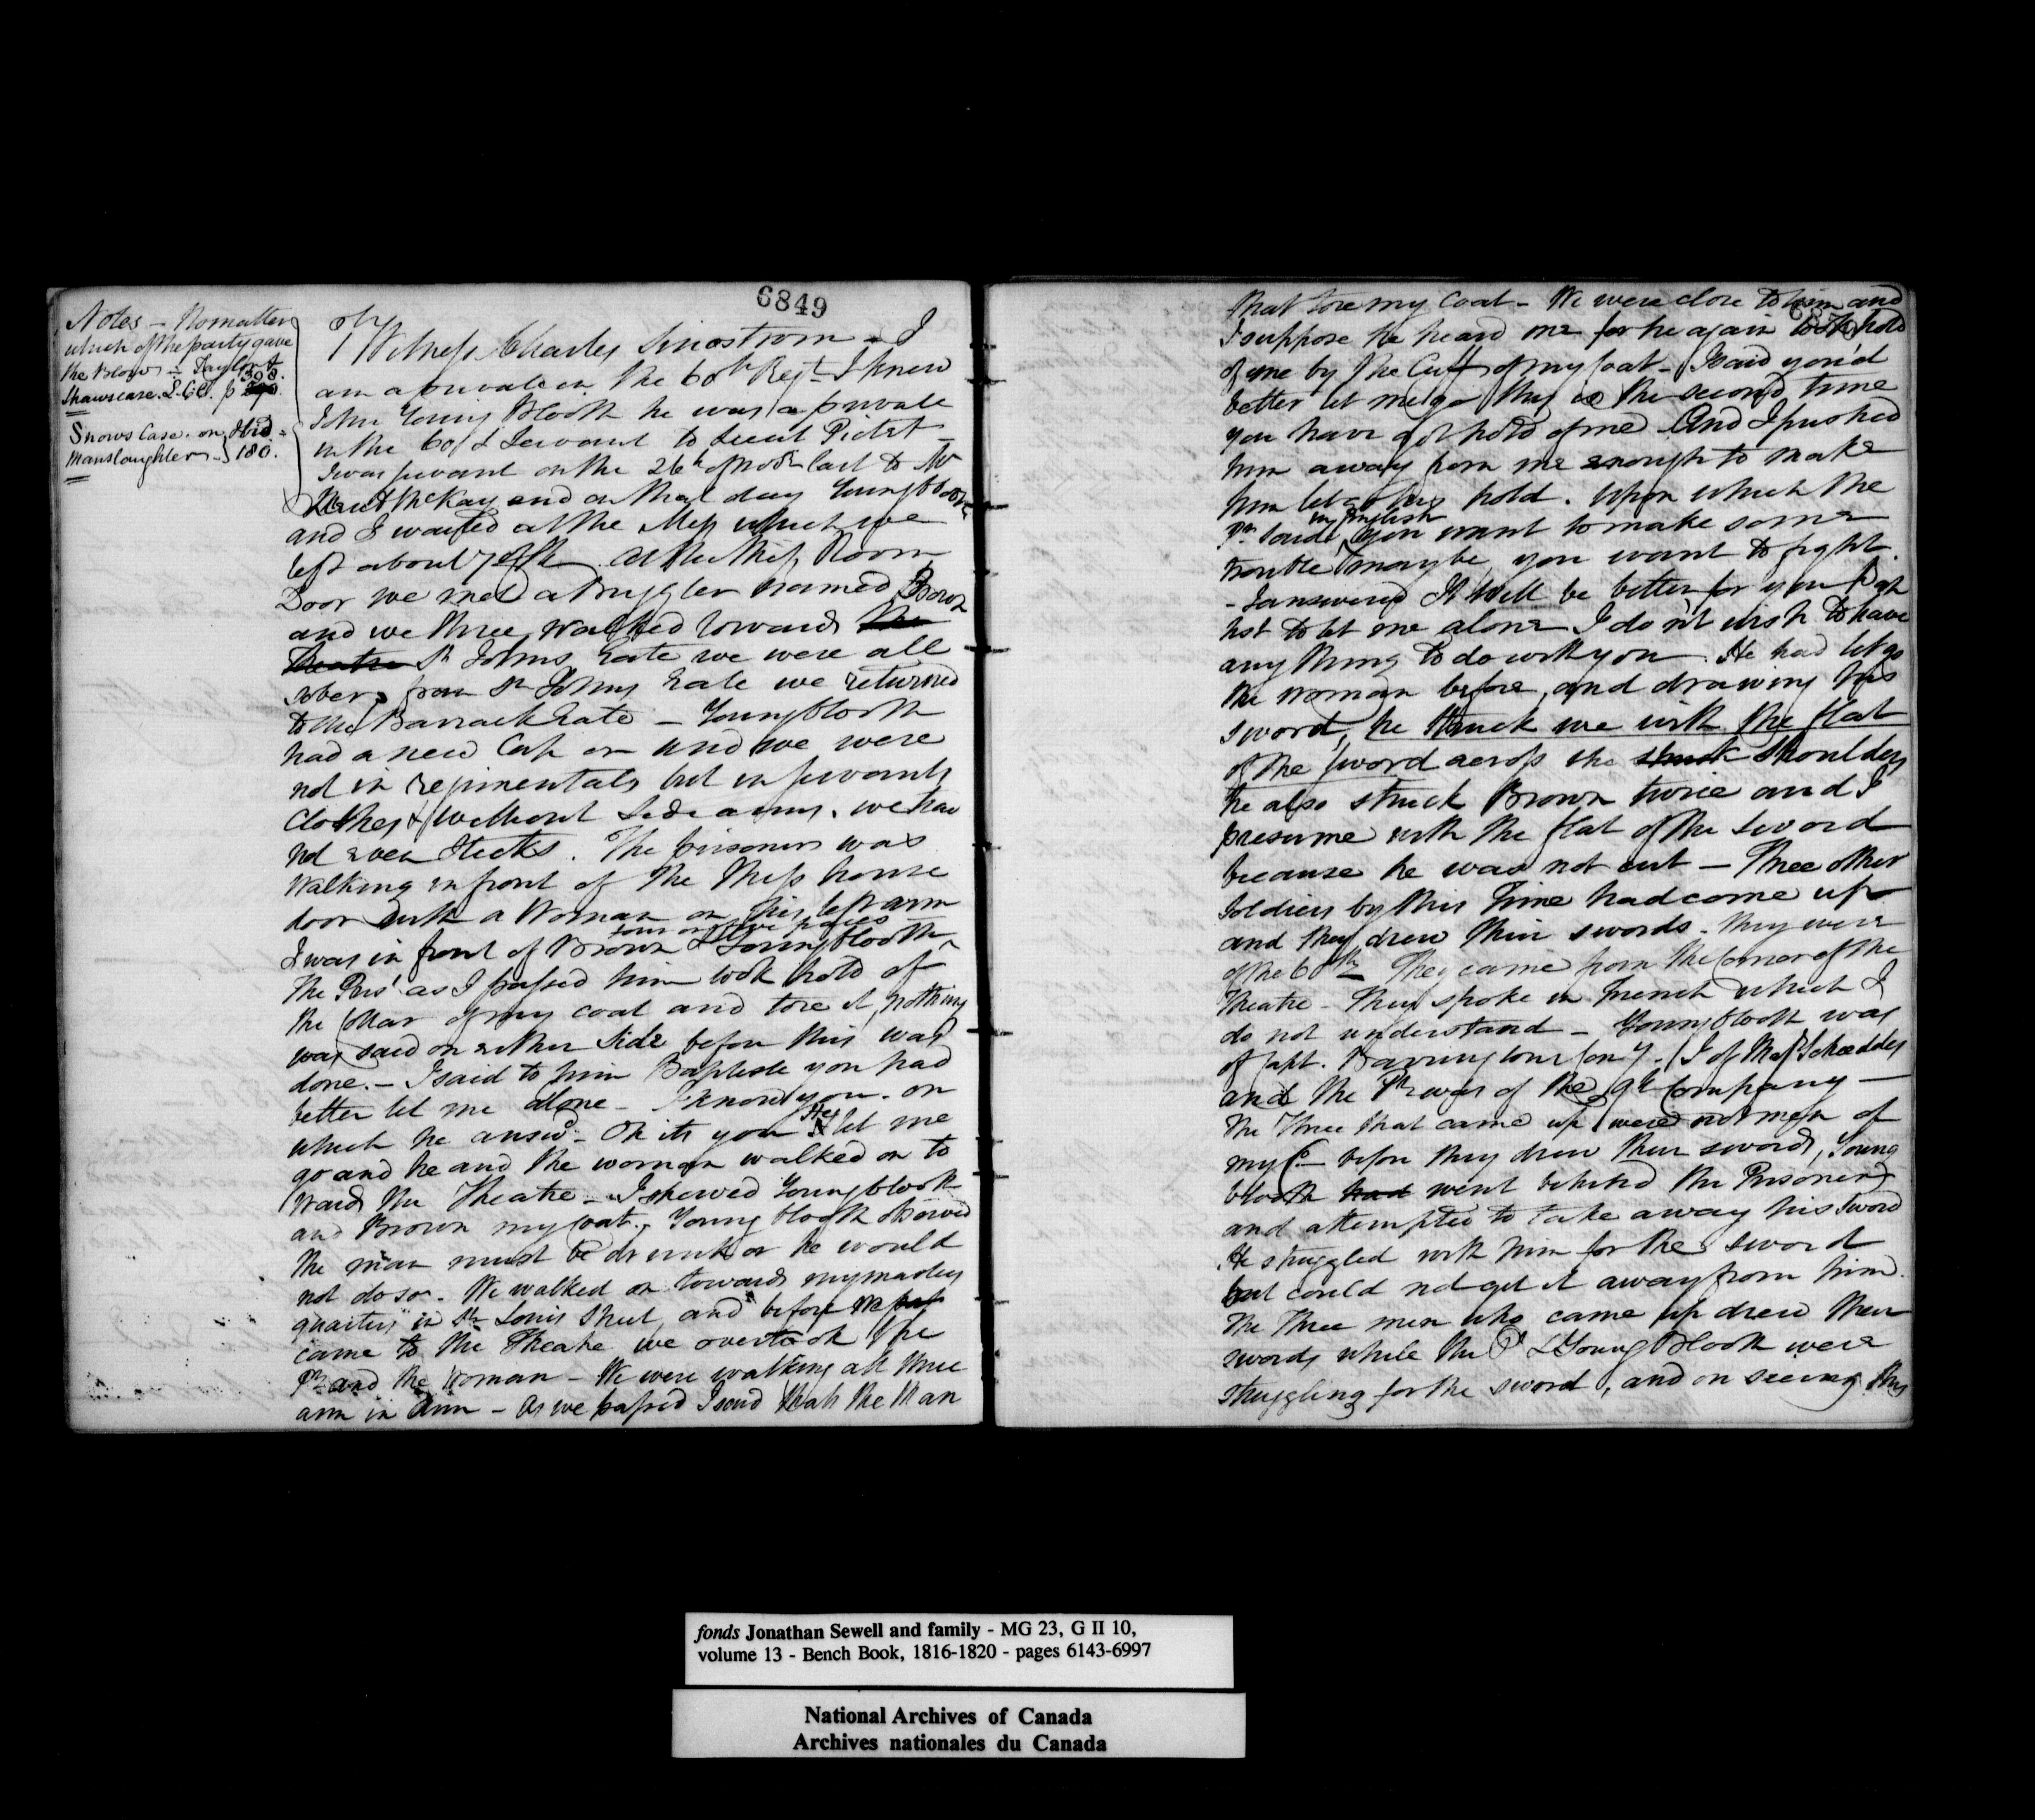 6849
Notes - No matter
which of the party gave
the Blow - Taylor &
Shaws case. L.C.C. p 398.
Snows Case. on Ibid -
Manslaughter - 180.
Witness Charles Sinostrom - I
am a private in the 60th Regt I knew
John Young Blooth he was a private
in the 60th & Servant to Lieut Pictet -
I was servant on the 26th of Novr last to
Lieut McKay and on that day Youngblooth
and I waited at the Mess which we
left about 7 oClk. At the Mess Room
Door we met a Bugler named Brown
and we three walked towards the
Theatre St Johns Gate we were all
sober, from St Johns Gate we returned
to the Barrack Gate - Youngblooth
had a new Cap on and we were
not in regimentals but in servants
Clothes & without Side arms. we had
not even Sticks. The prisoner was
walking in front of the Mess house
door with a Woman on his left arm
four or five paces
I was in front of Brown & Youngblooth -
the Prisr as I passed him took hold of
the Collar of my coat and tore it, nothing
was said on either Side before this was
done. - I said to him Baptiste you had
better let me alone - I know you. on
which he answd - Oh its you He let me
go and he and the woman walked on to
wards the Theatre - I shewed Youngblooth
and Brown my Coat. Young blooth observed
the man must be drunk or he would
not do so. We walked on towards my masters
quarters in St Louis Street, and before we
came to the Theatre we overtook the
Pr and the Woman - We were walking all three
arm in Arm - As we passed I said thats the Man
that tore my Coat - We were close to him and
I suppose he heard me for he again took hold
of me by the Cuff of my Coat - I said you'd
better let me go this is the second time
you have got hold of me - And I pushed
him away from me enough to make
him let go his hold. Upon which the
in English
Pr said you want to make some
trouble maybe you want to fight.
- I answered It will be better for you
to let me alone I don't wish to have
any thing to do with you. He had let go
the woman before, and drawing his
sword, he struck me with the flat
of the sword across the struck shoulders
he also struck Brown twice and I
presume with the flat of the sword
because he was not cut - Three other
Soldiers by this time had come up
and they drew their swords. they were
of the 60th They came from the Corner of the
Theatre - They spoke in French which I
do not understand - Youngblooth was
of Capt. Barringtons Comy. I of
and the Pr was of the 9th Company -
The Three that came up were not men of
my Co - before they drew their swords, Young
blooth had went behind the Prisoner
and attempted to take away his sword
He struggled with him for the sword
but could not get it away from him.
The Three men who came up drew their
swords while the Pr & Young Blooth were
struggling for the sword, and on seeing this
fonds Jonathan Sewell and family - MG 23, G II 10,
volume 13 - Bench Book, 1816-1820 - pages 6143-6997
National Archives of Canada
Archives nationales du Canada